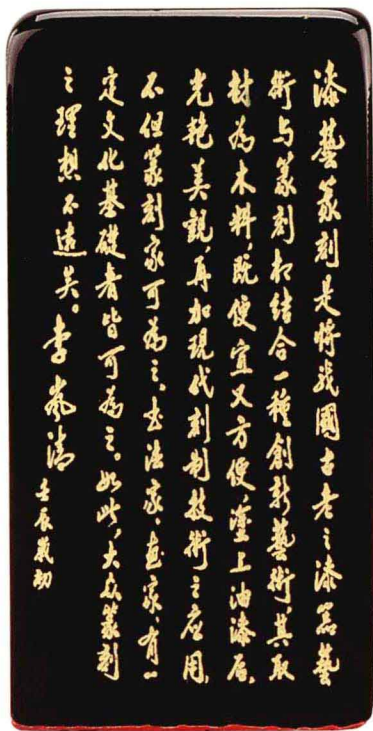 漆藝篆刻是將我國古老之漆器藝
術与篆刻相結合一種創新藝術，其取
材為木料，既便宜又方便，塗上油漆后，
光艳美觀，再加現代刻制技術之应用，
不但篆刻家可為之、书法家、画家、有一
定文化基礎者皆可為之。如此，大众篆刻
之理想不遠矣。李嵐清 壬辰歲初